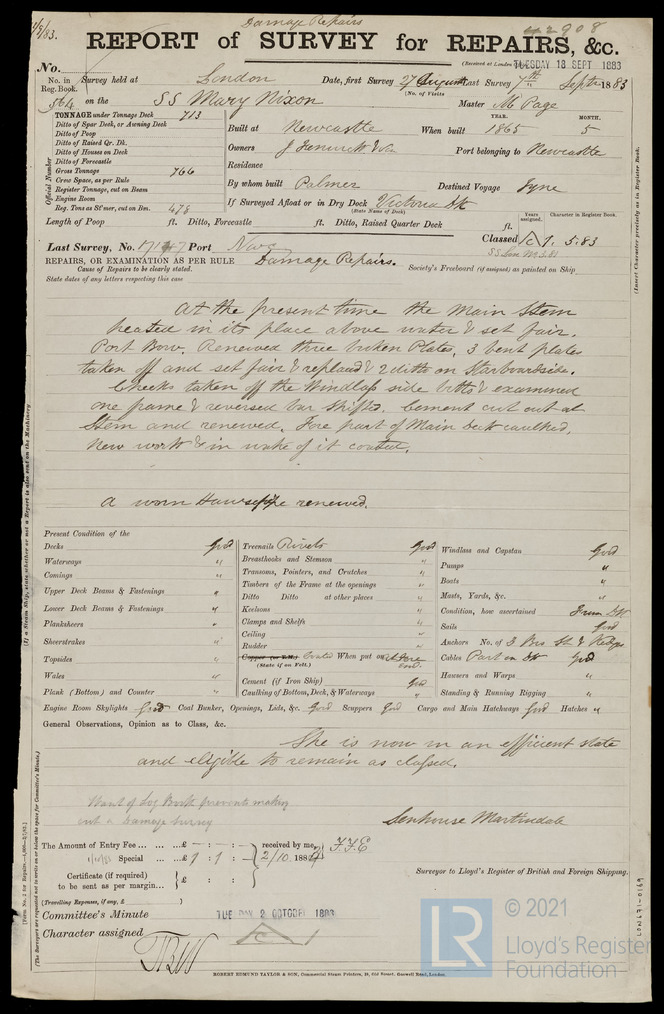 Damage Repairs
42908
REPORT of SURVEY for REPAIRS, &c.
(Received at London TUESDAY 18 SEPT 1883
No.
No. in Reg. Book. Survey held at London Date, first Survey 27 August Last Survey 7th Septr 1883
(No. of Visits
564 on the SS Mary Nixon Master M Page
TONNAGE under Tonnage Deck 713
Ditto of Spar Deck, or Awning Deck
Ditto of Poop
Ditto of Raised Qr. Dk.
Ditto of Houses on Deck
Ditto of Forecastle
Gross Tonnage 766
Crew Space, as per Rule
Register Tonnage, cut on Beam
Engine Room
Reg. Tons as St'mer, cut on Bm. 478
Official Number
YEAR. MONTH.
Built at Newcastle When built 1865 5
Owners J Fenwick & Co Port belonging to Newcastle
Residence
By whom built Palmer Destined Voyage Tyne
If Surveyed Afloat or in Dry Dock Victoria Dk
(State Name of Dock.)
Years assigned. Character in Register Book.
Length of Poop ft. Ditto, Forecastle ft. Ditto, Raised Quarter Deck ft.
Classed 1. 5.83
Last Survey, No. Port
REPAIRS, OR EXAMINATION AS PER RULE Damage Repairs.
Cause of Repairs to be clearly stated.
Society's Freeboard (if assigned) as painted on Ship
State dates of any letters respecting this case
At the present time the Main Stem
heated in its place above water & set fair.
Port Bow. Renewed three broken Plates, 3 bent plates
taken off and set fair & replaced & 2 ditto on Starboardside.
Cheeks taken off the Windlass side bitts & examined
one frame & reversed bar shifted. Cement cut out at
Stem and renewed. Fore part of Main deck caulked.
New work & in wake of it coated.
A worn Hawsepipe renewed.
Present Condition of the
Decks Good
Waterways "
Comings "
Upper Deck Beams & Fastenings "
Lower Deck Beams & Fastenings "
Planksheers "
Sheerstrakes "
Topsides "
Wales "
Plank (Bottom) and Counter "
Treenails Rivets Good
Breasthooks and Stemson "
Transoms, Pointers, and Crutches "
Timbers of the Frame at the openings "
Ditto Ditto at other places "
Keelsons "
Clamps and Shelfs "
Ceiling "
Rudder "
Copper (or Y.M.) Coated When put on
(State if on Felt.)
Cement (if Iron Ship) Good
Caulking of Bottom, Deck, & Waterways "
Windlass and Capstan Good
Pumps "
Boats "
Masts, Yards, &c. "
Condition, how ascertained From Dk
Sails Good
Anchors No. of 3
Cables Part on Dk Good
Hawsers and Warps "
Standing & Running Rigging "
Engine Room Skylights Good Coal Bunker, Openings, Lids, &c. Good Scuppers Good Cargo and Main Hatchways Good Hatches "
General Observations, Opinion as to Class, &c.
She is now in an efficient state
and eligible to remain as classed.
Want of Log Book prevents making
out a Damage survey
Senhouse Martindale
The Amount of Entry Fee £ - : - : - received by me,
Special £ 1 : 1 : - 2/10.1883
F.F.E
Certificate (if required) to be sent as per margin £ : :
(Travelling Expenses, if any, £ )
Surveyor to Lloyd's Register of British and Foreign Shipping.
Committee's Minute TUESDAY 2 OCTOBER 1883
Character assigned
ROBERT EDMUND TAYLOR & SON, Commercial Steam Printers, 19, Old Street, Goswell Road, London.
(Insert Character precisely as in Register Book.
(If a Steam Ship, state whether or not a Report is also sent on the Machinery.
(The Surveyors are requested not to write on or below the space for Committee's Minute.)
LON671-0169
© 2021
LR
Lloyd's Register
Foundation